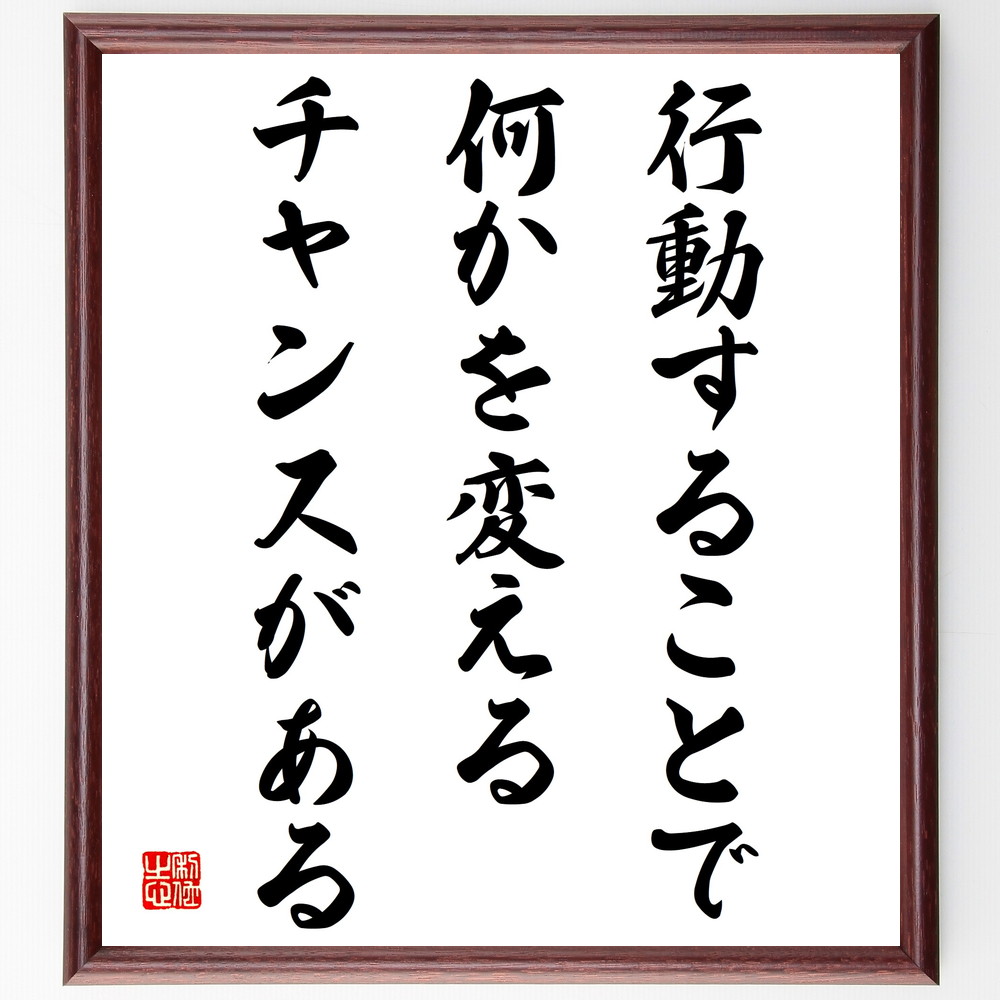 行動することで
何かを変える
チャンスがある